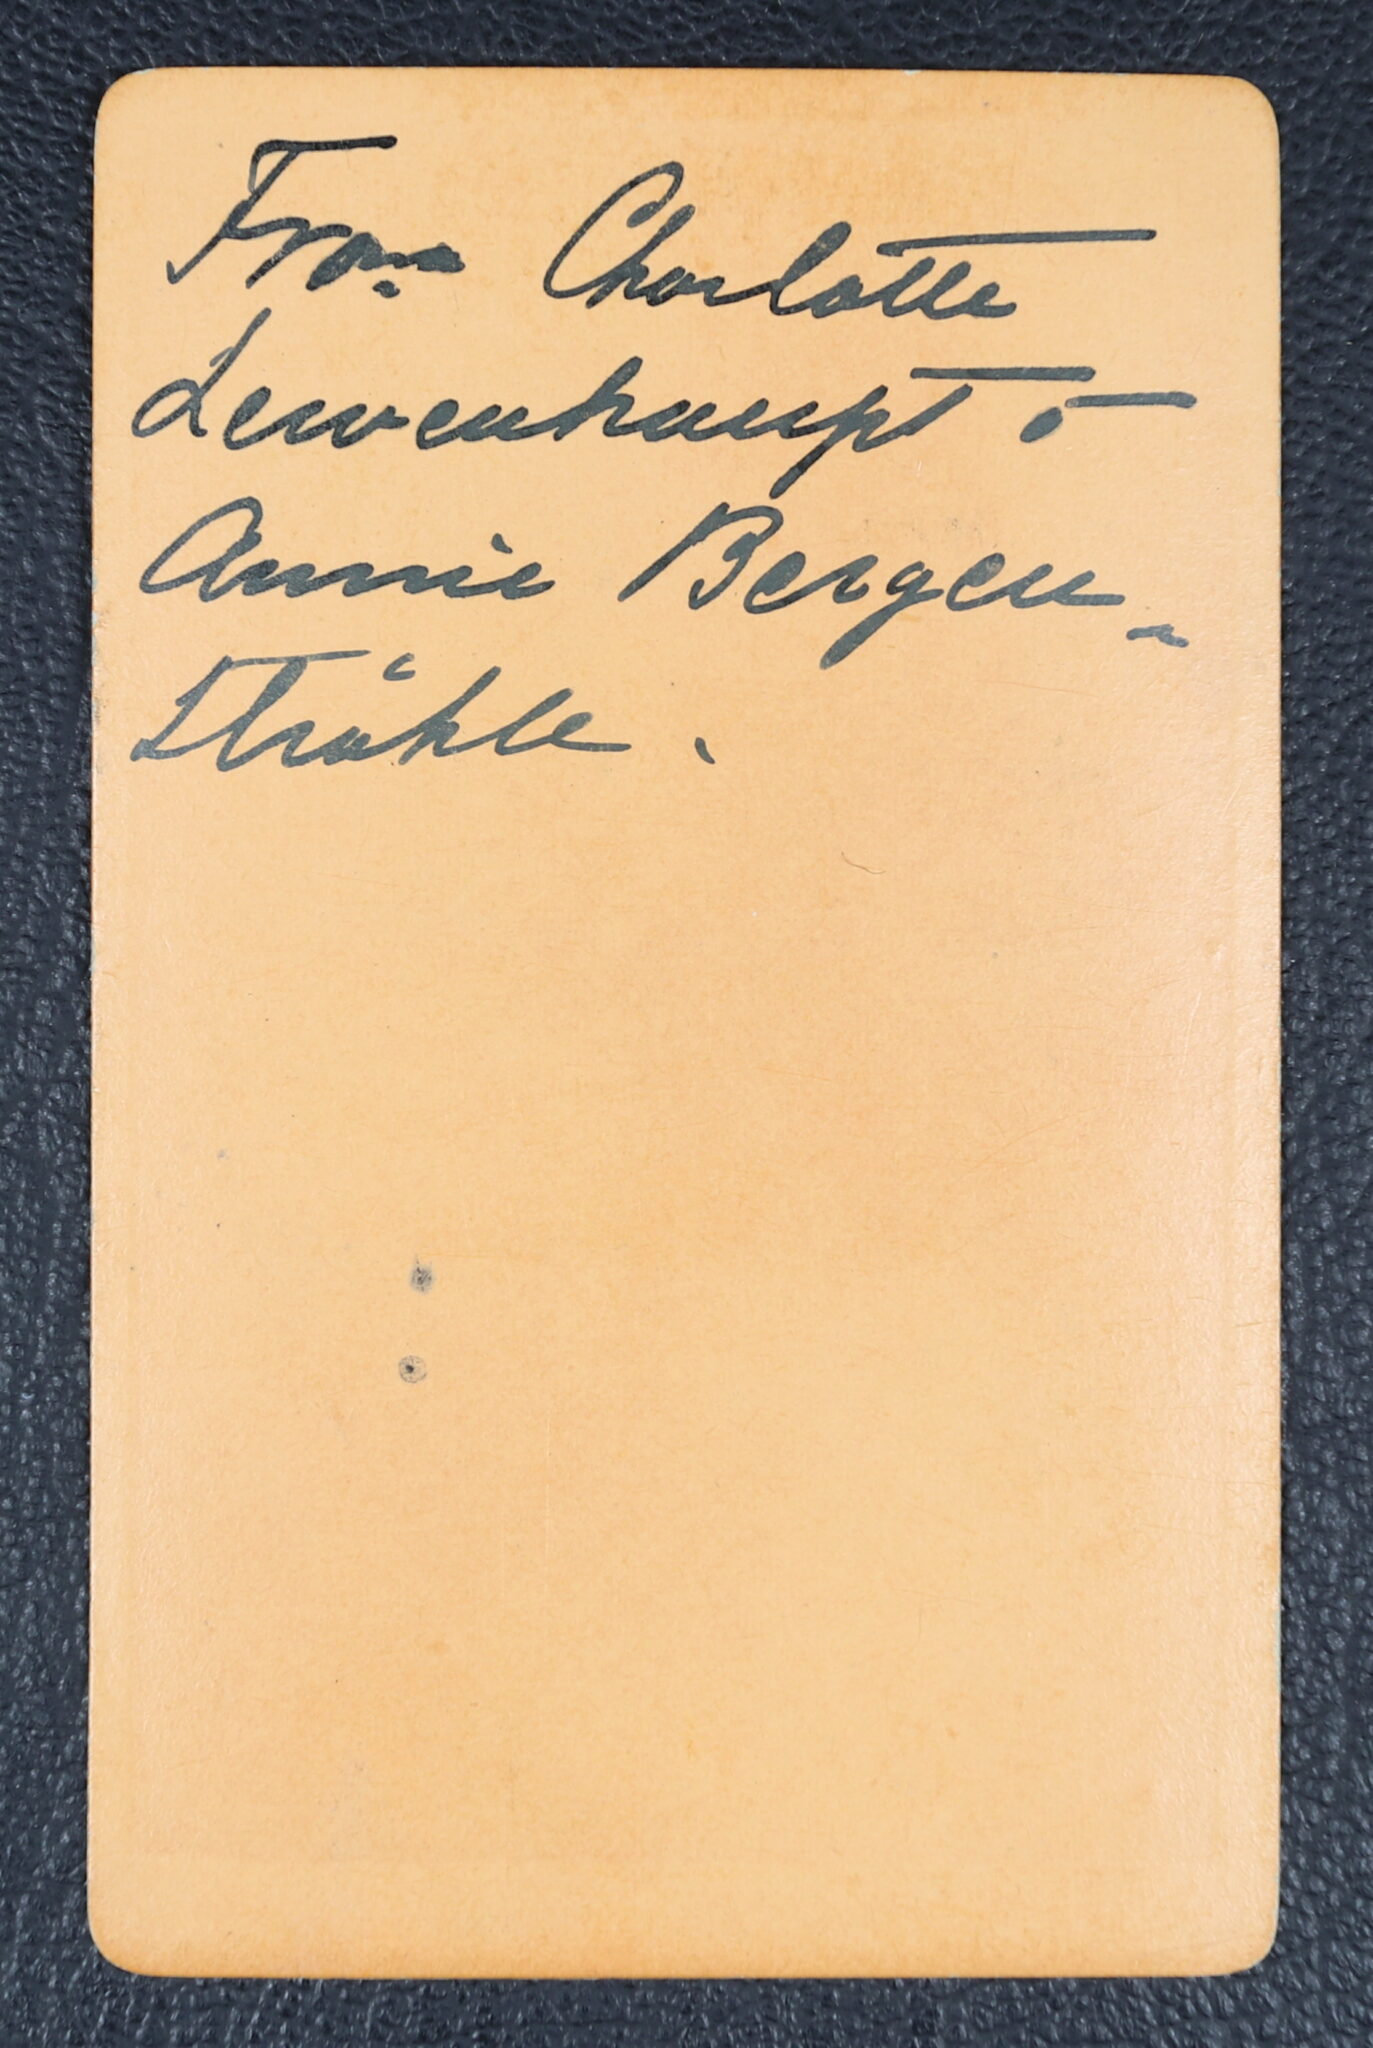 From Charlotte
Lewenhaupt o
Annie Bergen-
stråhle.